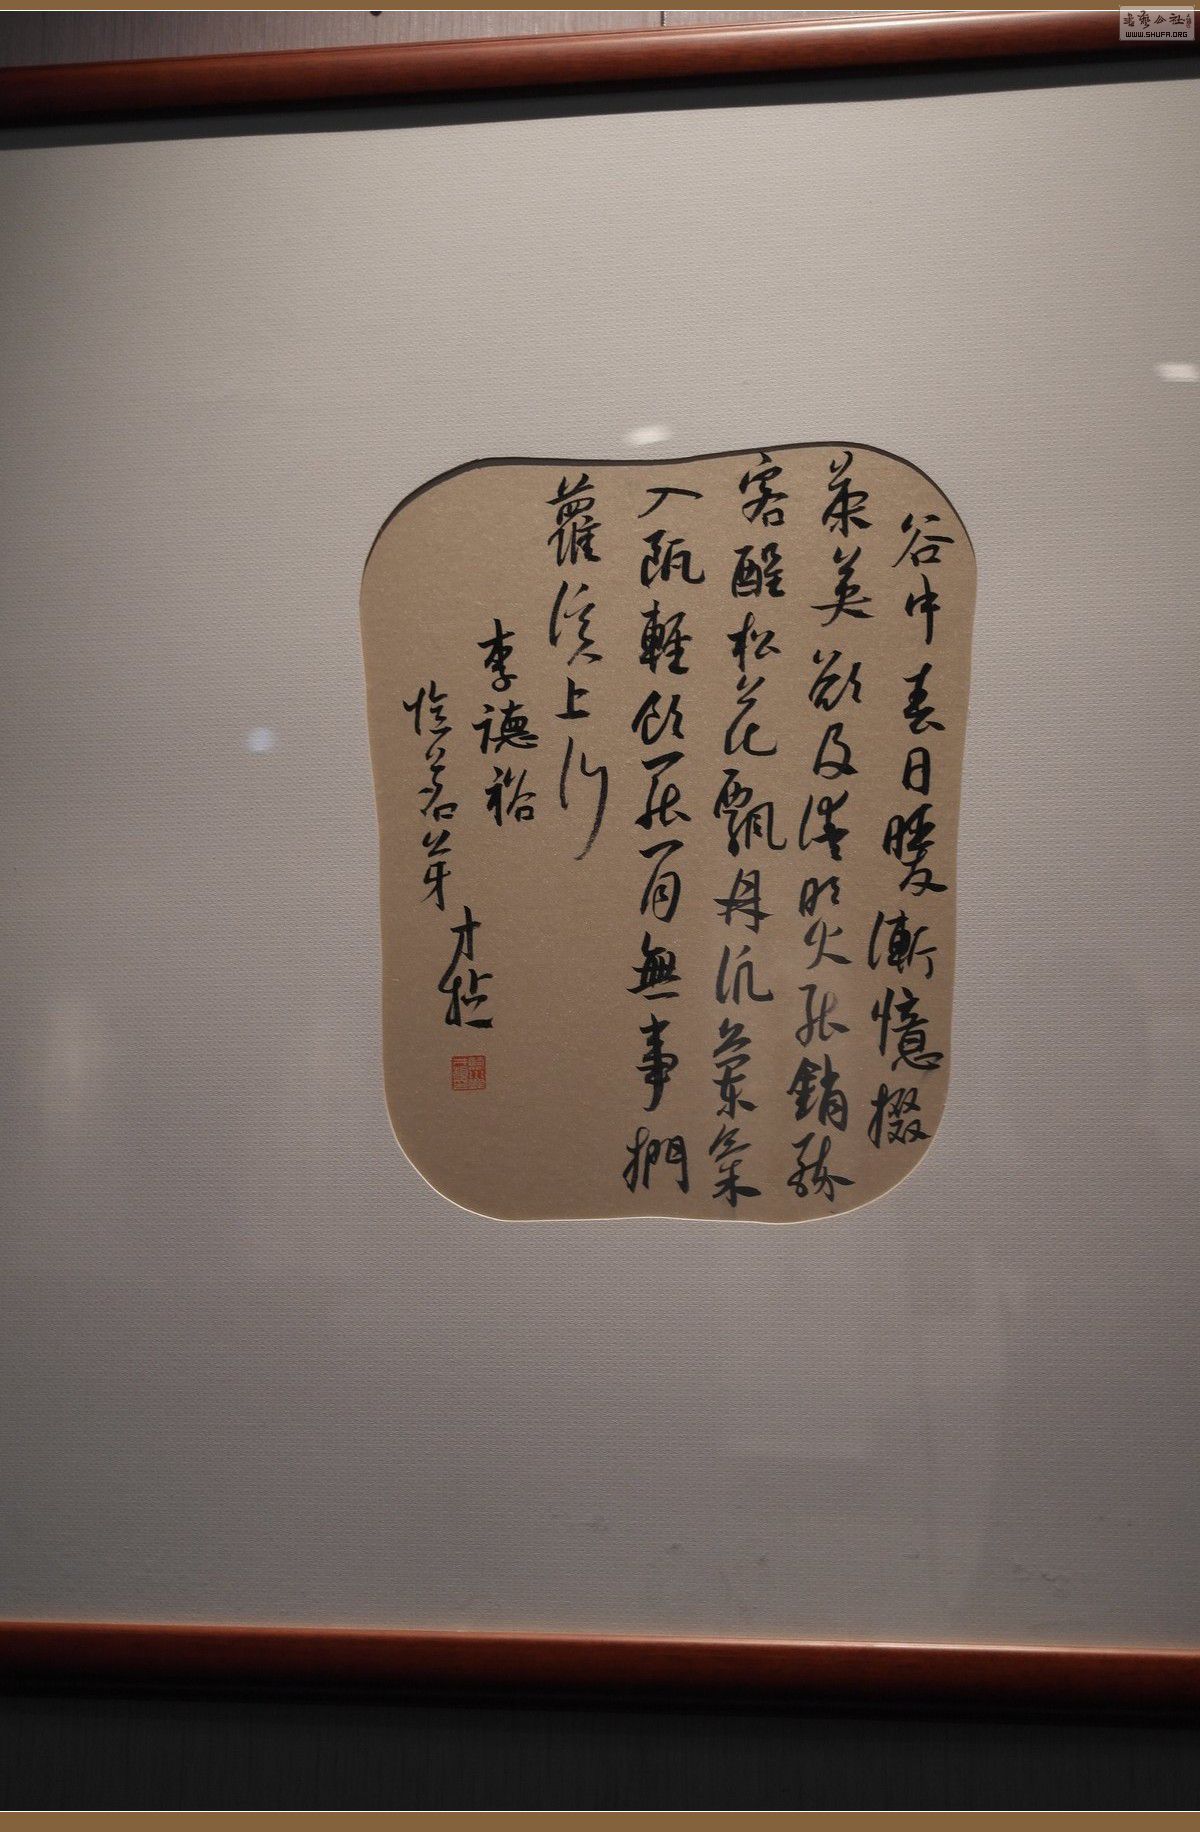 谷中春日暖漸憶掇
茶英欲及清明火能銷醉
客酲松花飄鼎泛蘭氣
入甌輕飲罷閒無事捫
蘿溪上行
李德裕
憶茗芽
才
書藝公社
WWW.SHUFA.ORG